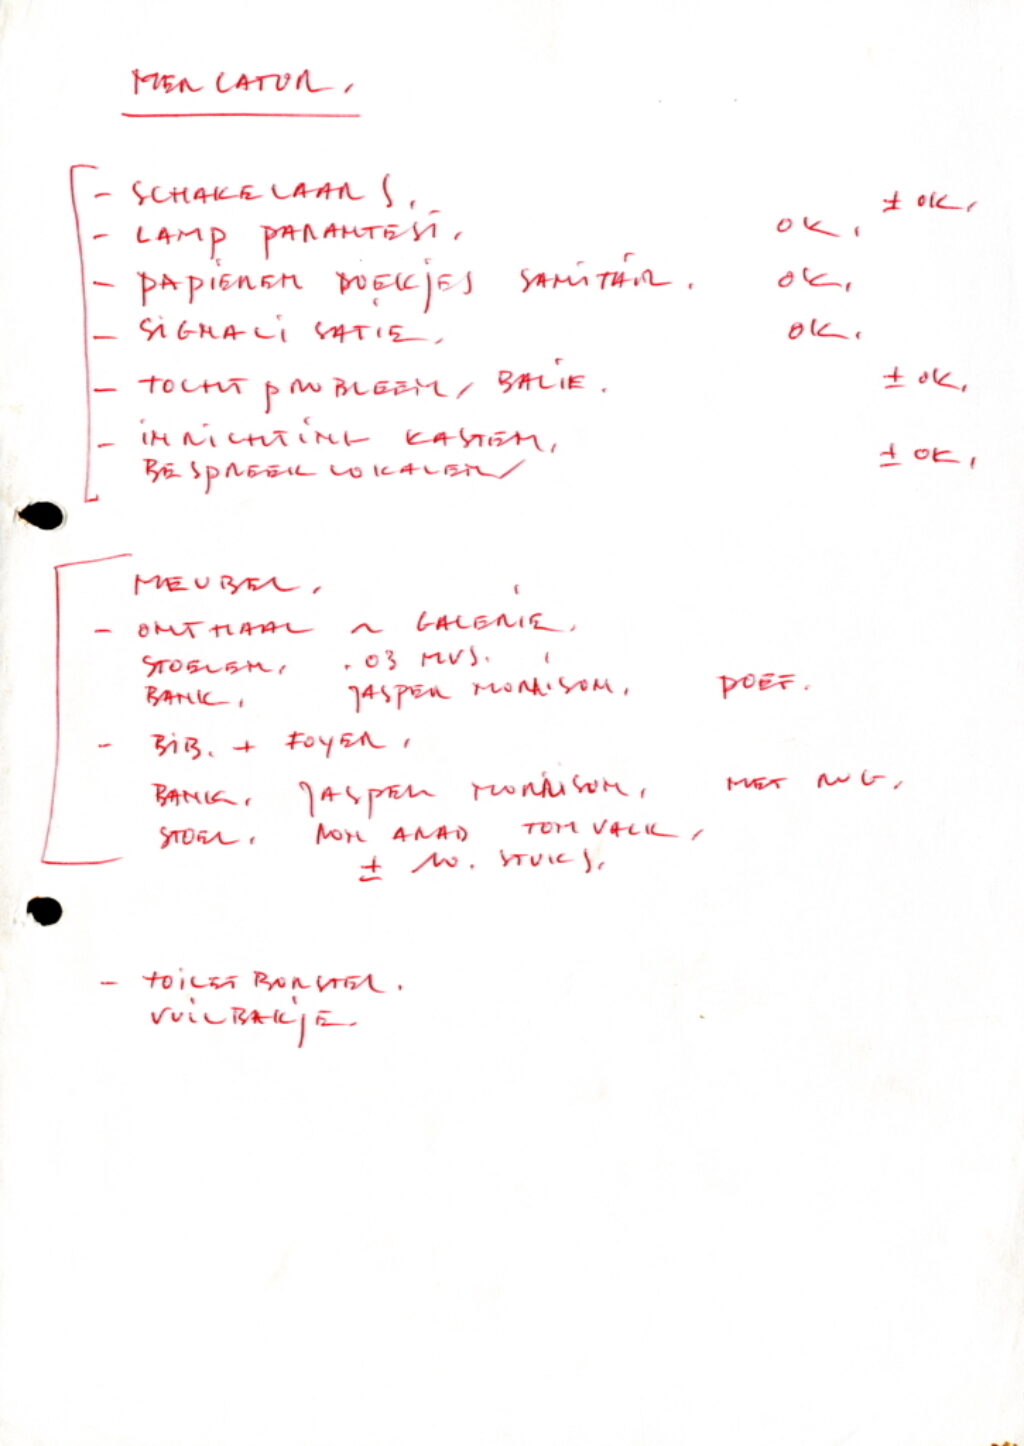 MERCATOR.
- SCHAKELAARS. ± OK.
- LAMP PARANTESI. OK.
- PAPIEREN DOEKJES SANITAIR. OK.
- SIGNALISATIE. OK.
- TOCHTPROBLEEM / BALIE. ± OK.
- INRICHTING KASTEN,
BESPREEKLOKALEN ± OK.
MEUBEL.
- ONTHAAL ~ GALERIE.
STOELEN. .03 MVS.
BANK. JASPER MORRISON. POEF.
- BIB. + FOYER.
BANK. JASPER MORRISON. MET RUG.
STOEL. RON ARAD TOM VACK.
± 10. STUKS.
- TOILETBORSTEL.
VUILBAKJE.